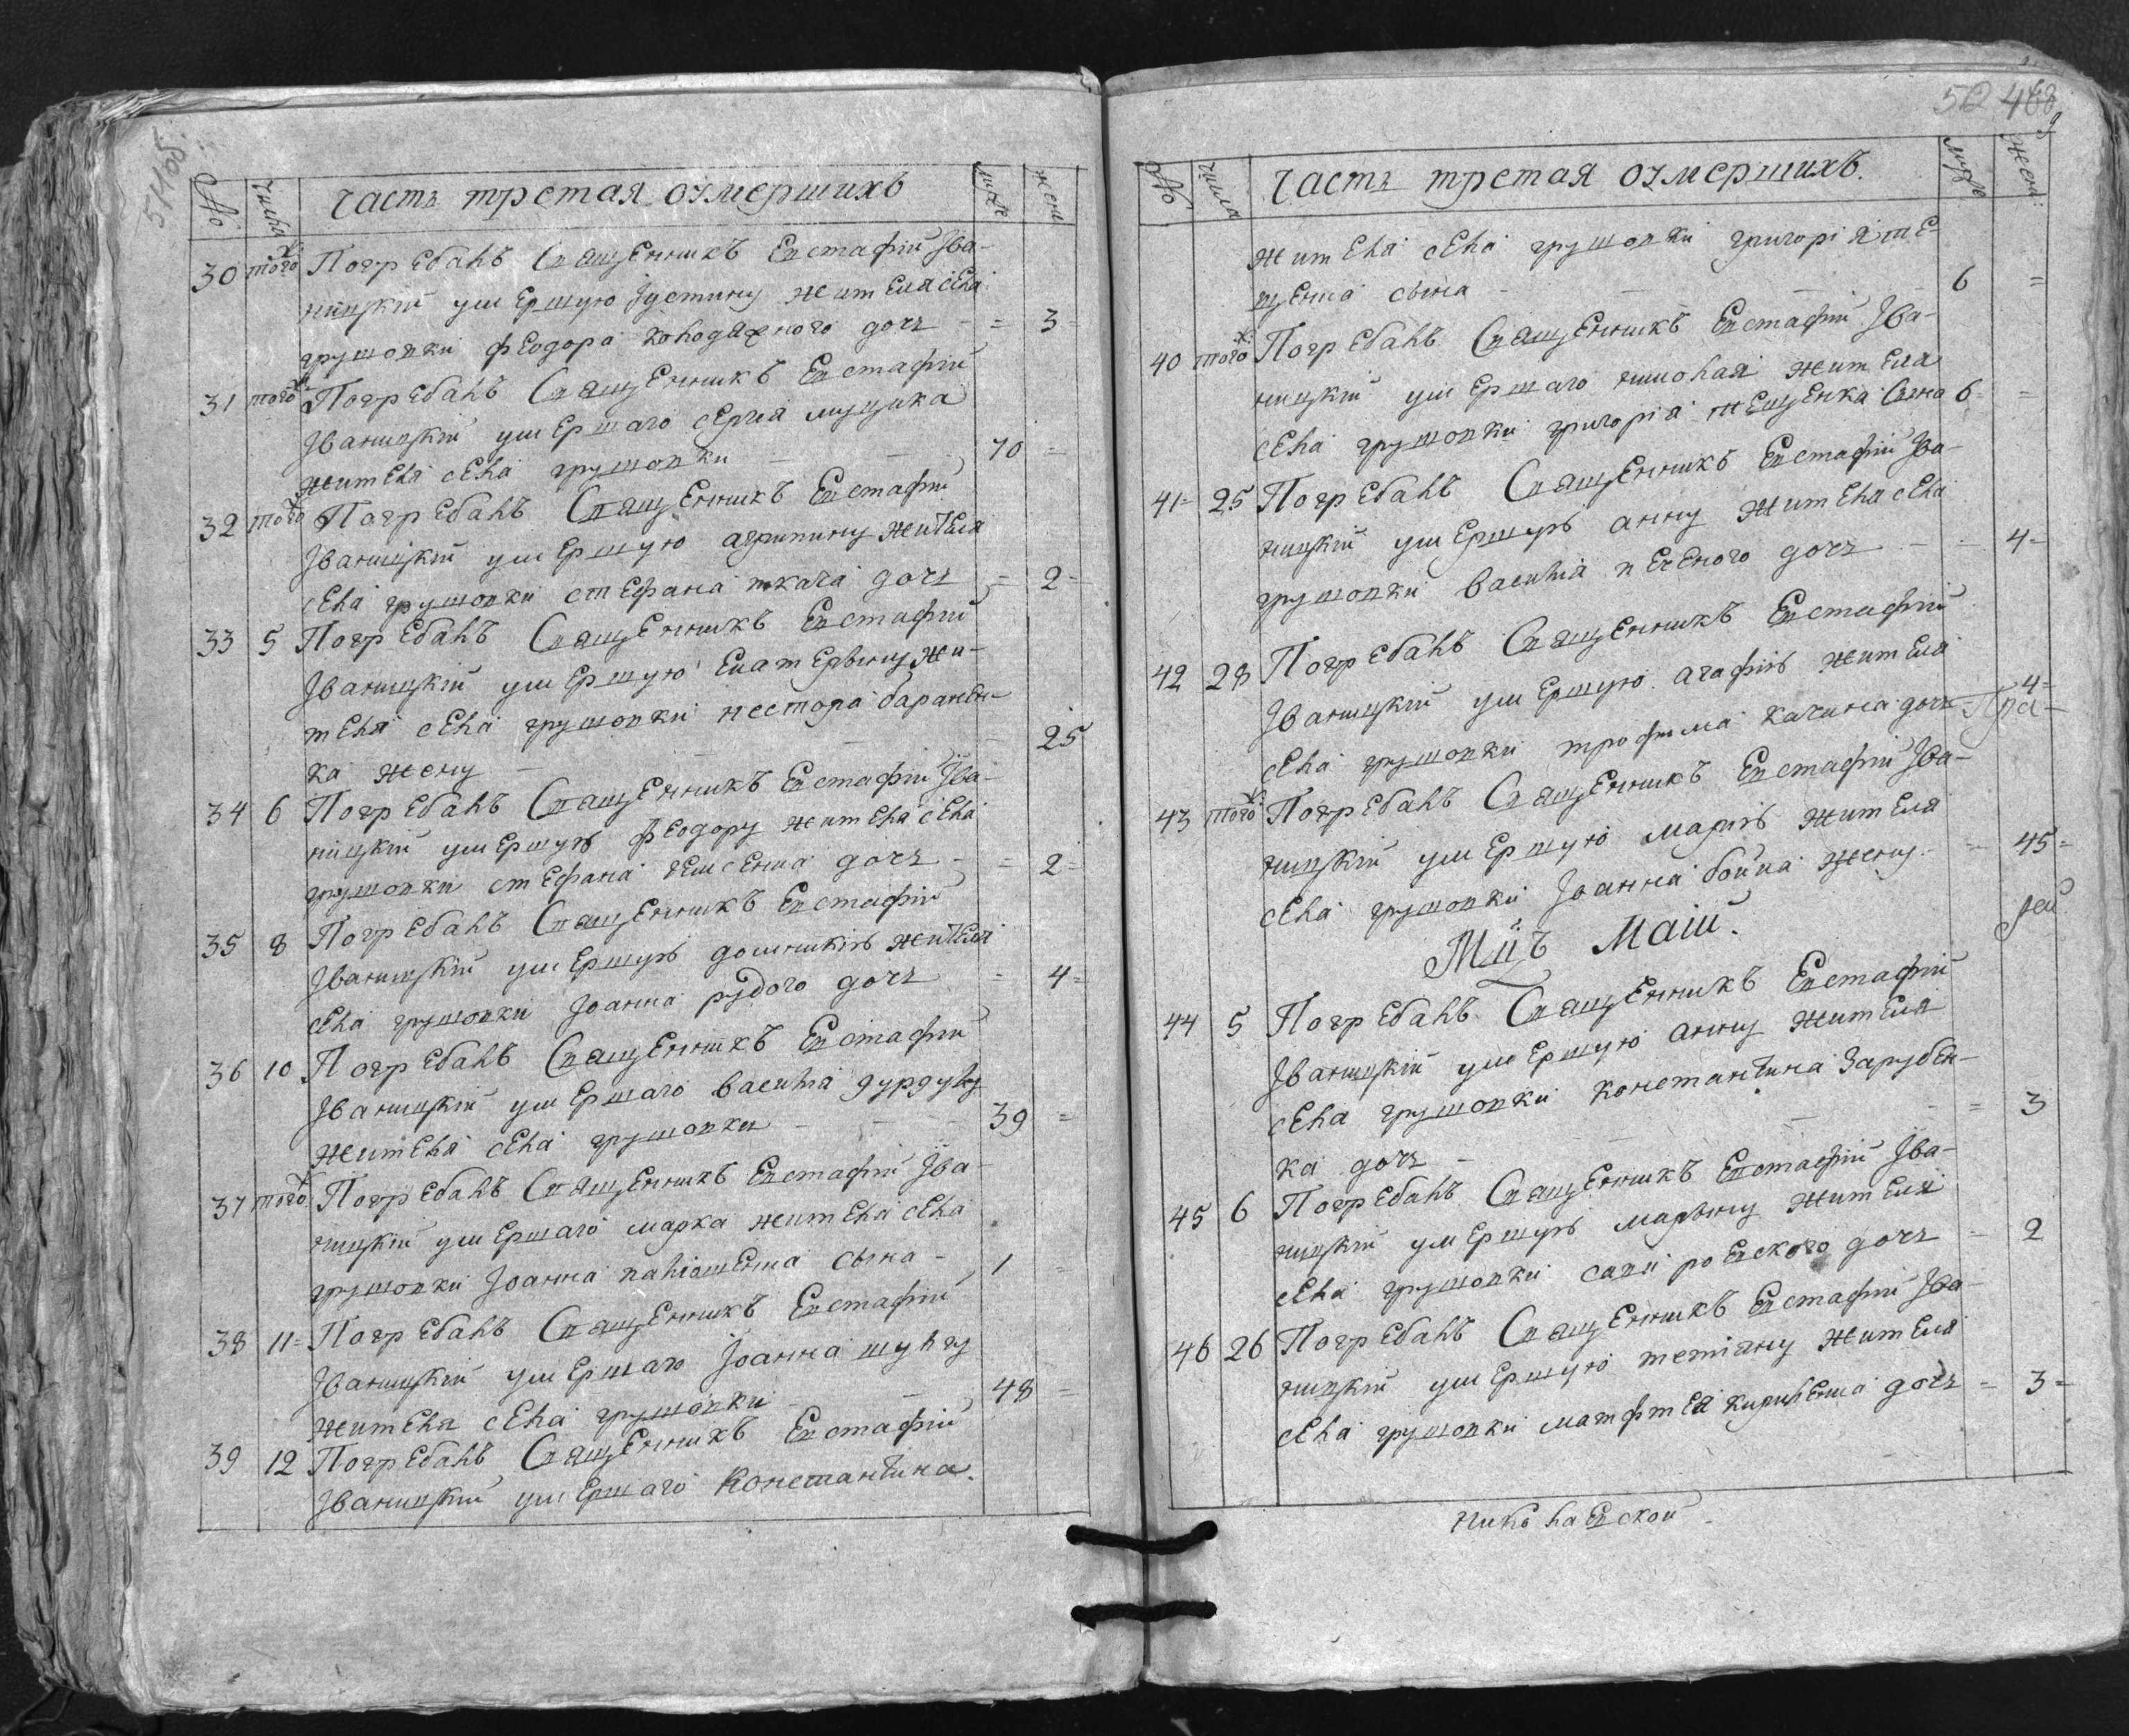 № числа часть третая оумершихъ мужс женс
30 того Погребалъ Священникъ Евстафій Іва-
ницкій умершую Іустину жителя села
грушовки феодора колодяжного дочь = 3
31 того Погребалъ Священникъ Евстафій
Іваницкій умершаго сергія
жителя села грушовки 70 =
32 того Погребалъ Священникъ Евстафій
Іваницкій умершую агрипину жителя
села грушовки стефана ткача дочь = 2
33 5 Погребалъ Священникъ Евстафій
Іваницкій умершую Екатерыну жи-
теля села грушовки нестора баранен-
ка жену 25
34 6 Погребалъ Священникъ Евстафій Іва-
ницкій умершую феодору жителя села
грушовки стефана дочь = 2
35 8 Погребалъ Священникъ Евстафій
Іваницкій умершую домникію жителя
села грушовки Іоанна рудого дочь = 4
36 10 Погребалъ Священникъ Евстафій
Іваницкій умершаго василія
жителя села грушовки 39 =
37 того Погребалъ Священникъ Евстафій Іва-
ницкій умершаго марка жителя села
грушовки Іоанна сына 1 =
38 11 Погребалъ Священникъ Евстафій
Іваницкій умершаго Іоанна шулгу
жителя села грушовки 48 =
39 12 Погребалъ Священникъ Евстафій
Іваницкій умершаго Константина
№ числа часть третая оумершихъ. мужс женс
жителя села грушовки григорія те-
щенка сына 6 =
40 того Погребалъ Священникъ Евстафій Іва-
ницкій умершаго николая жителя
села грушовки григорія тещенка Сына 6 =
41 25 Погребалъ Священникъ Евстафій Іва-
ницкій умершую анну жителя села
грушовки василія печеного дочь 4
42 28 Погребалъ Священникъ Евстафій
Іваницкій умершую агафію жителя
села грушовки трофима качина дочь 4
43 того Погребалъ Священникъ Евстафій Іва-
ницкій умершую марію жителя
села грушовки Іоанна бойка жену 45
Мцъ Маій.
44 5 Погребалъ Священникъ Евстафій
Іваницкій умершую анну жителя
села грушовки Константина Зарубен-
ка дочь = 3
45 6 Погребалъ Священникъ Евстафій Іва-
ницкій умершую марыну жителя
села грушовки савы роевского дочь = 2
46 26 Погребалъ Священникъ Евстафій Іва-
ницкій умершую тетіану жителя
села грушовки матфтея кириленка дочь = 3
Николаевской